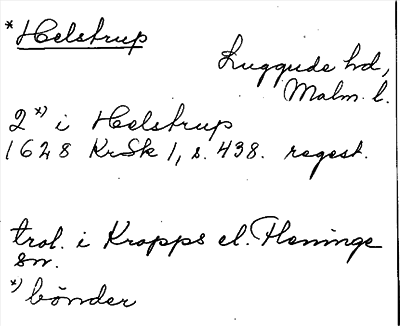 * Helstrup
Luggude hd,
Malm. l.
2 *) i Helstrup
1628 KrSk 1, s. 438. regest.
trol. i Kropps el. Fleninge
sn.
*) bönder